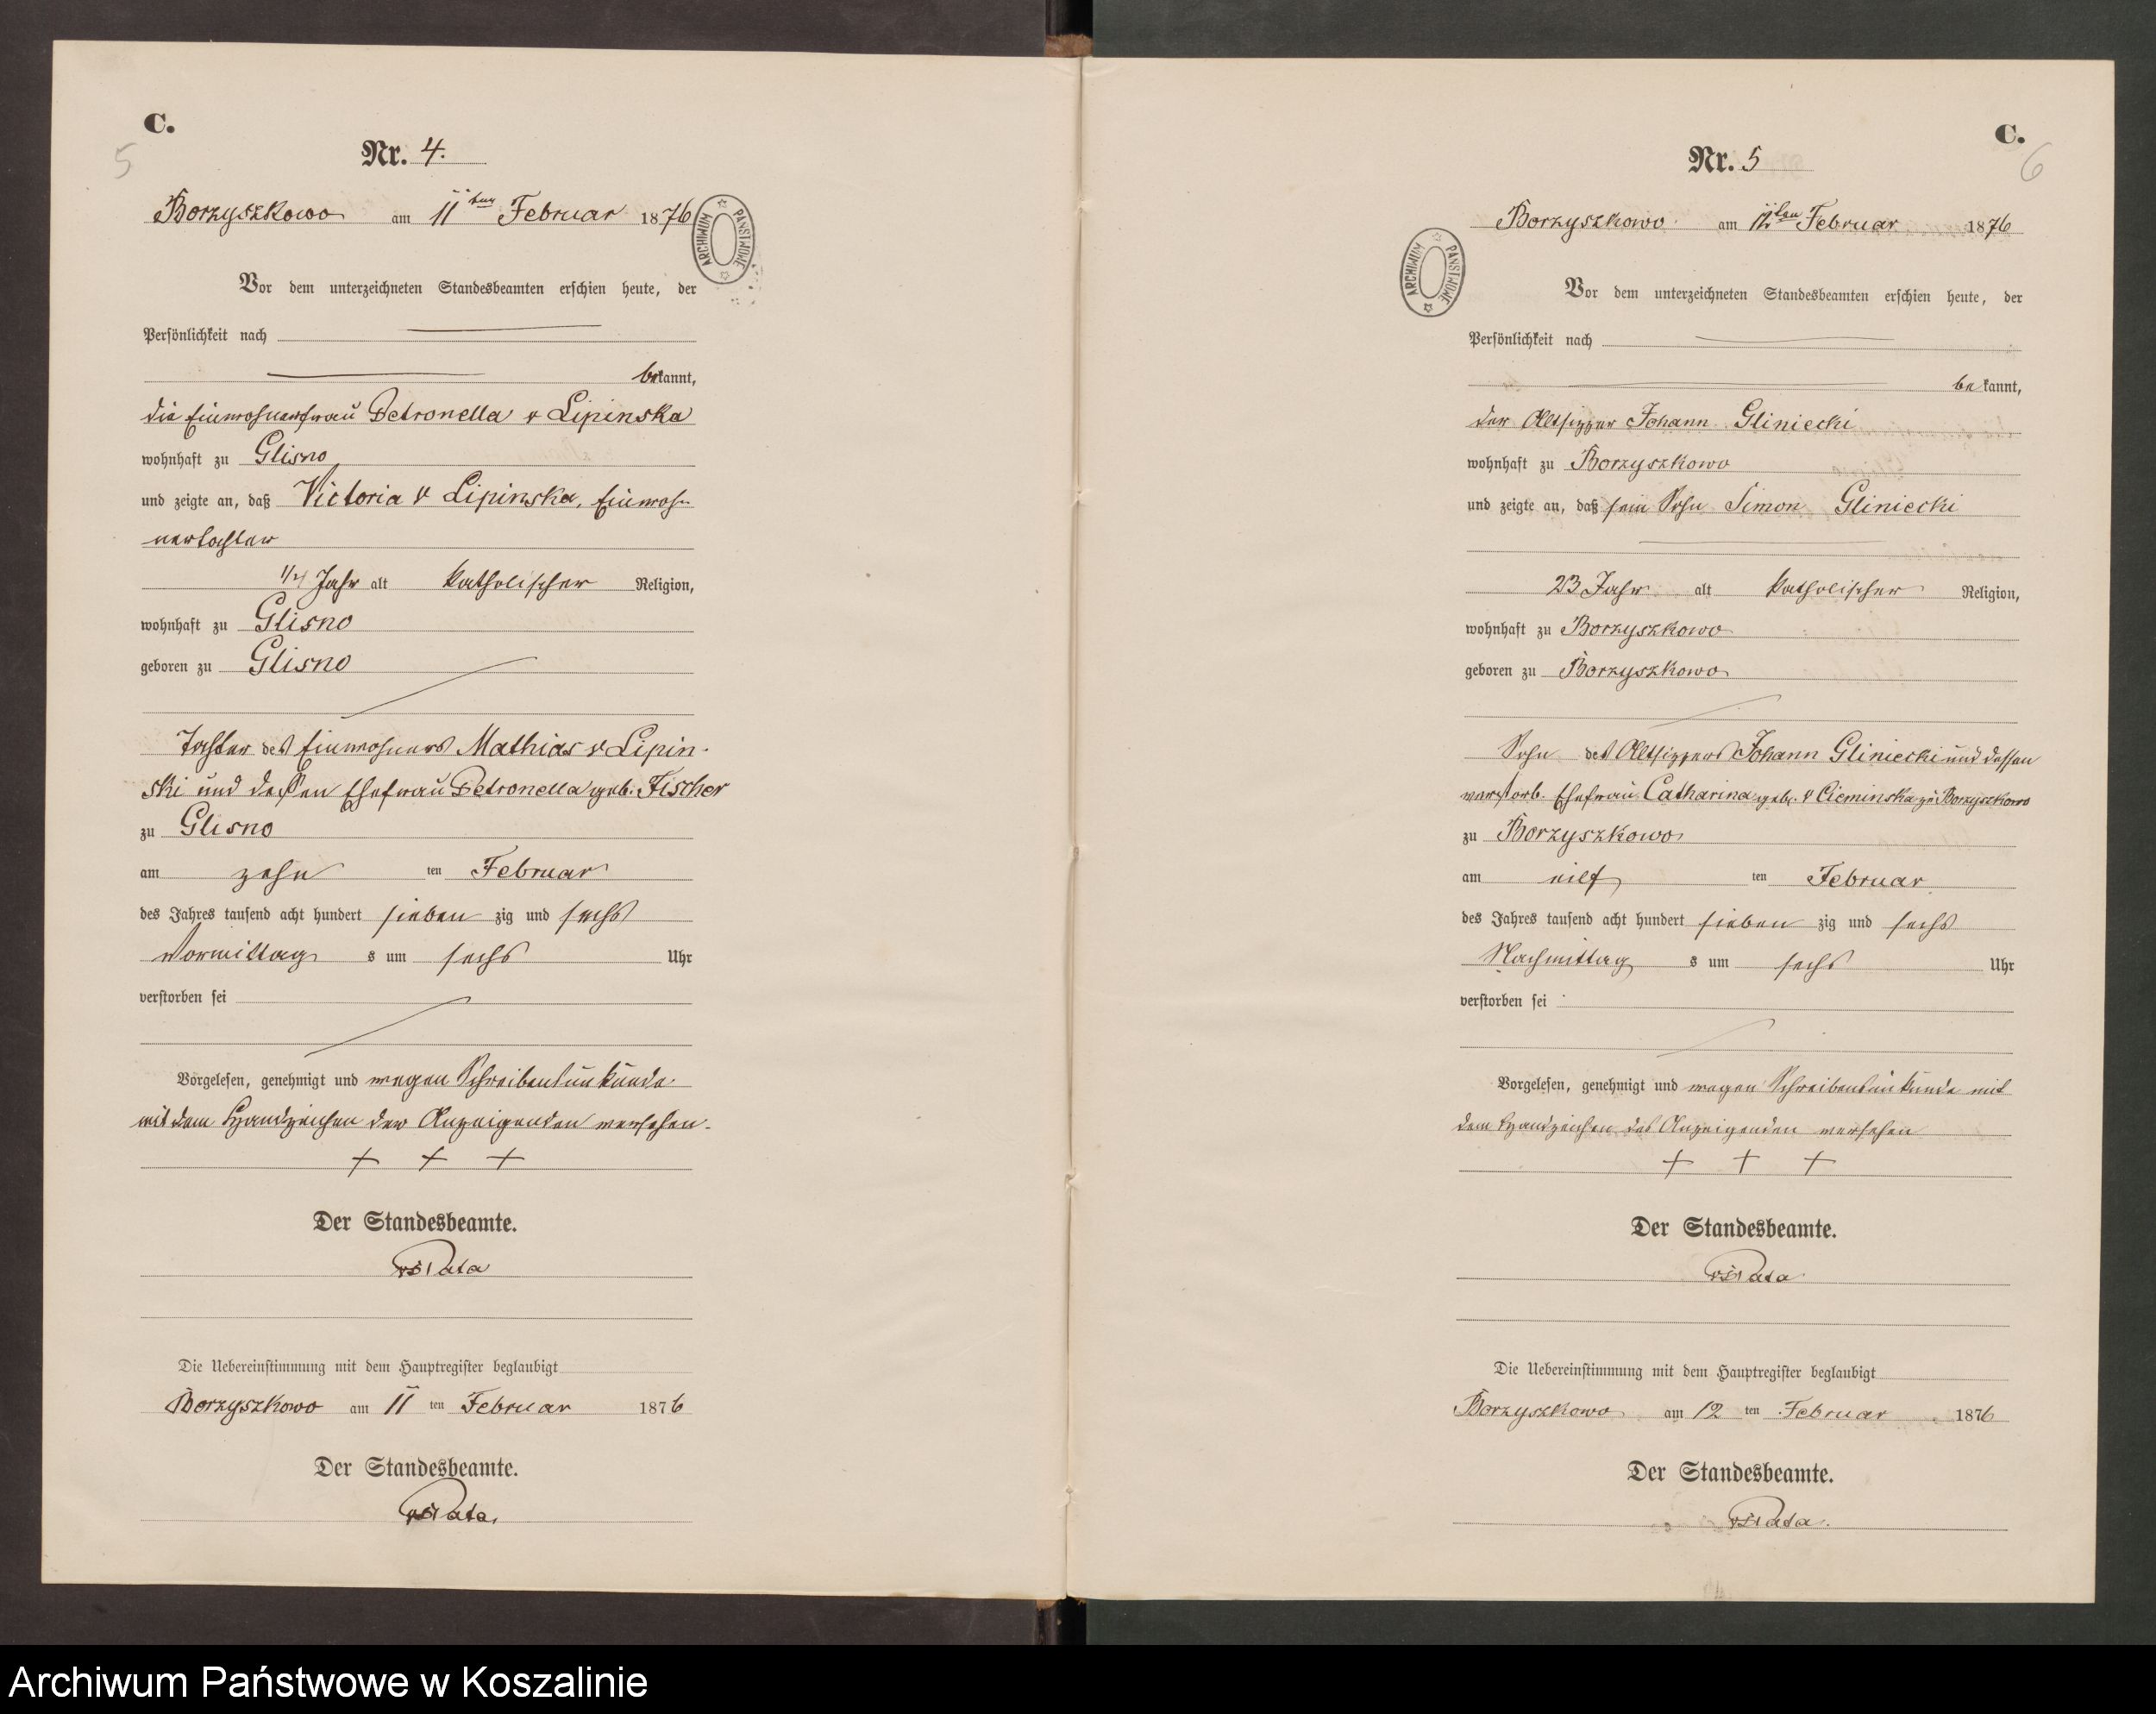 C.
5
Nr. 4.
Borzyszkowo am 11ten Februar 1876
ARCHIWUM PAŃSTWOWE
Vor dem unterzeichneten Standesbeamten erschien heute, der
Persönlichkeit nach
bekannt,
die Einwohnerfrau Petronella v Lipinska
wohnhaft zu Glisno
und zeigte an, daß Victoria v Lipinska, Einwoh-
nertochter
1/4 Jahr alt katholischer Religion,
wohnhaft zu Glisno
geboren zu Glisno
Tochter des Einwohners Mathias v Lipin-
ski und dessen Ehefrau Petronella geb. Fischer
zu Glisno
am zehn ten Februar
des Jahres tausend acht hundert sieben zig und sechs
Vormittag s um sechs Uhr
verstorben sei
Vorgelesen, genehmigt und wegen Schreibensunkunde
mit dem Handzeichen der Anzeigenden versehen.
+ + +
Der Standesbeamte.
Die Uebereinstimmung mit dem Hauptregister beglaubigt
Borzyszkowo am 11 ten Februar 1876
Der Standesbeamte.
C.
6
Nr. 5
Borzyszkowo am 12ten Februar 1876
ARCHIWUM PAŃSTWOWE
Vor dem unterzeichneten Standesbeamten erschien heute, der
Persönlichkeit nach
bekannt,
der Altsitzer Johann Gliniecki
wohnhaft zu Borzyszkowo
und zeigte an, daß sein Sohn Simon Gliniecki
23 Jahr alt katholischer Religion,
wohnhaft zu Borzyszkowo
geboren zu Borzyszkowo
Sohn des Altsitzers Johann Gliniecki und dessen
verstorb. Ehefrau Catharina geb. v Cieminska zu Borzyszkowo
zu Borzyszkowo
am eilf ten Februar
des Jahres tausend acht hundert sieben zig und sechs
Nachmittag s um sechs Uhr
verstorben sei
Vorgelesen, genehmigt und wegen Schreibensunkunde mit
dem Handzeichen des Anzeigenden versehen
+ + +
Der Standesbeamte.
Die Uebereinstimmung mit dem Hauptregister beglaubigt
Borzyszkowo am 12 ten Februar 1876
Der Standesbeamte.
Archiwum Państwowe w Koszalinie